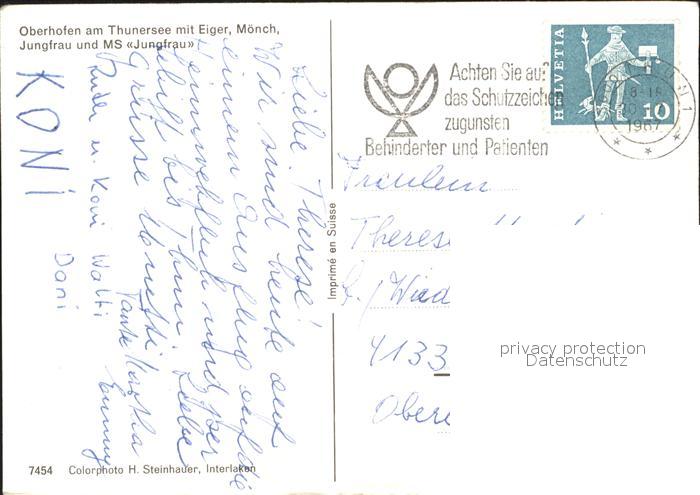 Oberhofen am Thunersee mit Eiger, Mönch,
Jungfrau und MS «Jungfrau»
Liebe Therese!
Wir sind heute auf
einem Ausflug auf die
und per
Schiff bis Thun. Liebe
Grüsse
Tante Martha
Ruedi u. Koni Walti
Emmy
Dani
KONI
7454 Colorphoto H. Steinhauer, Interlaken
Imprimé en Suisse
Achten Sie auf
das Schutzzeichen
zugunsten
Behinderter und Patienten
HELVETIA
10
1967
Fräulein
Theres
4133
Obere
privacy protection
Datenschutz